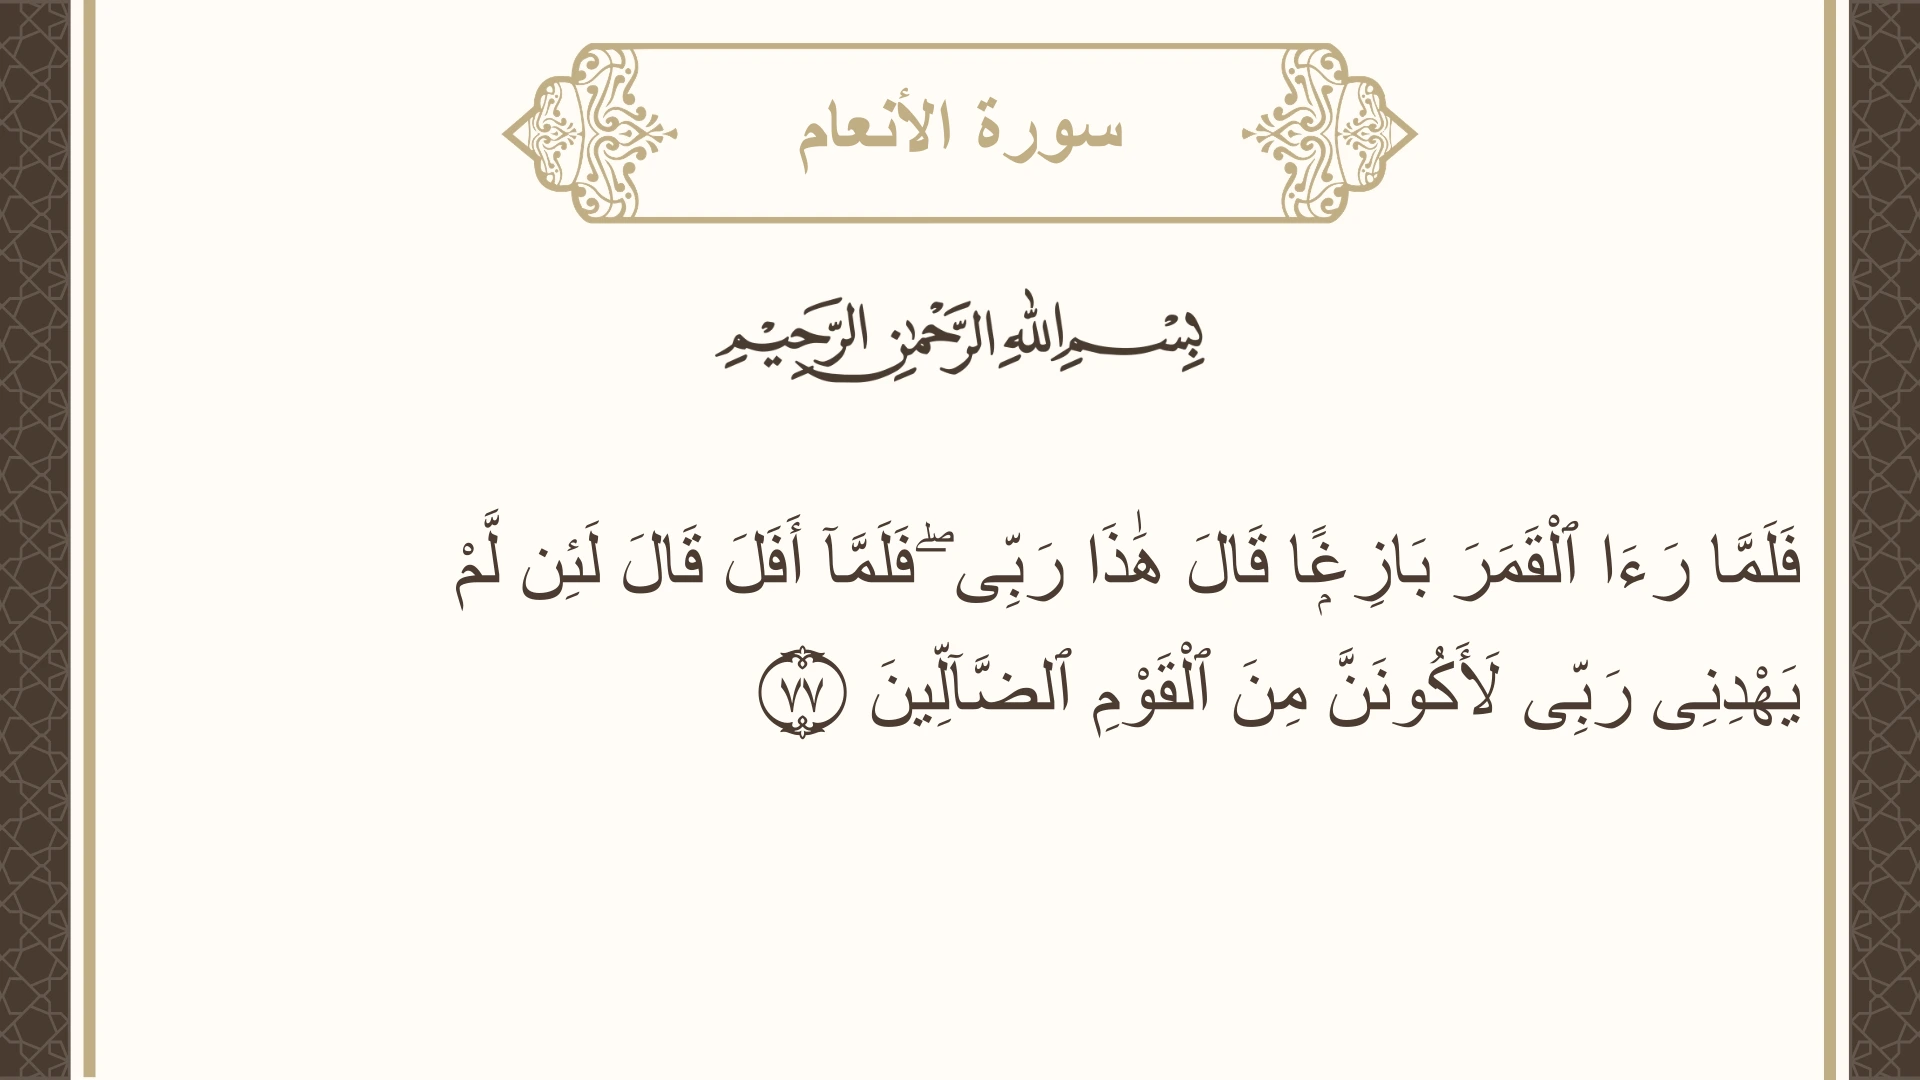 سورة الأنعام
بِسْمِ اللهِ الرَّحْمٰنِ الرَّحِيْمِ
فَلَمَّا رَءَا ٱلْقَمَرَ بَازِغًۭا قَالَ هَٰذَا رَبِّى ۖ فَلَمَّآ أَفَلَ قَالَ لَئِن لَّمْ
يَهْدِنِى رَبِّى لَأَكُونَنَّ مِنَ ٱلْقَوْمِ ٱلضَّآلِّينَ ٧٧